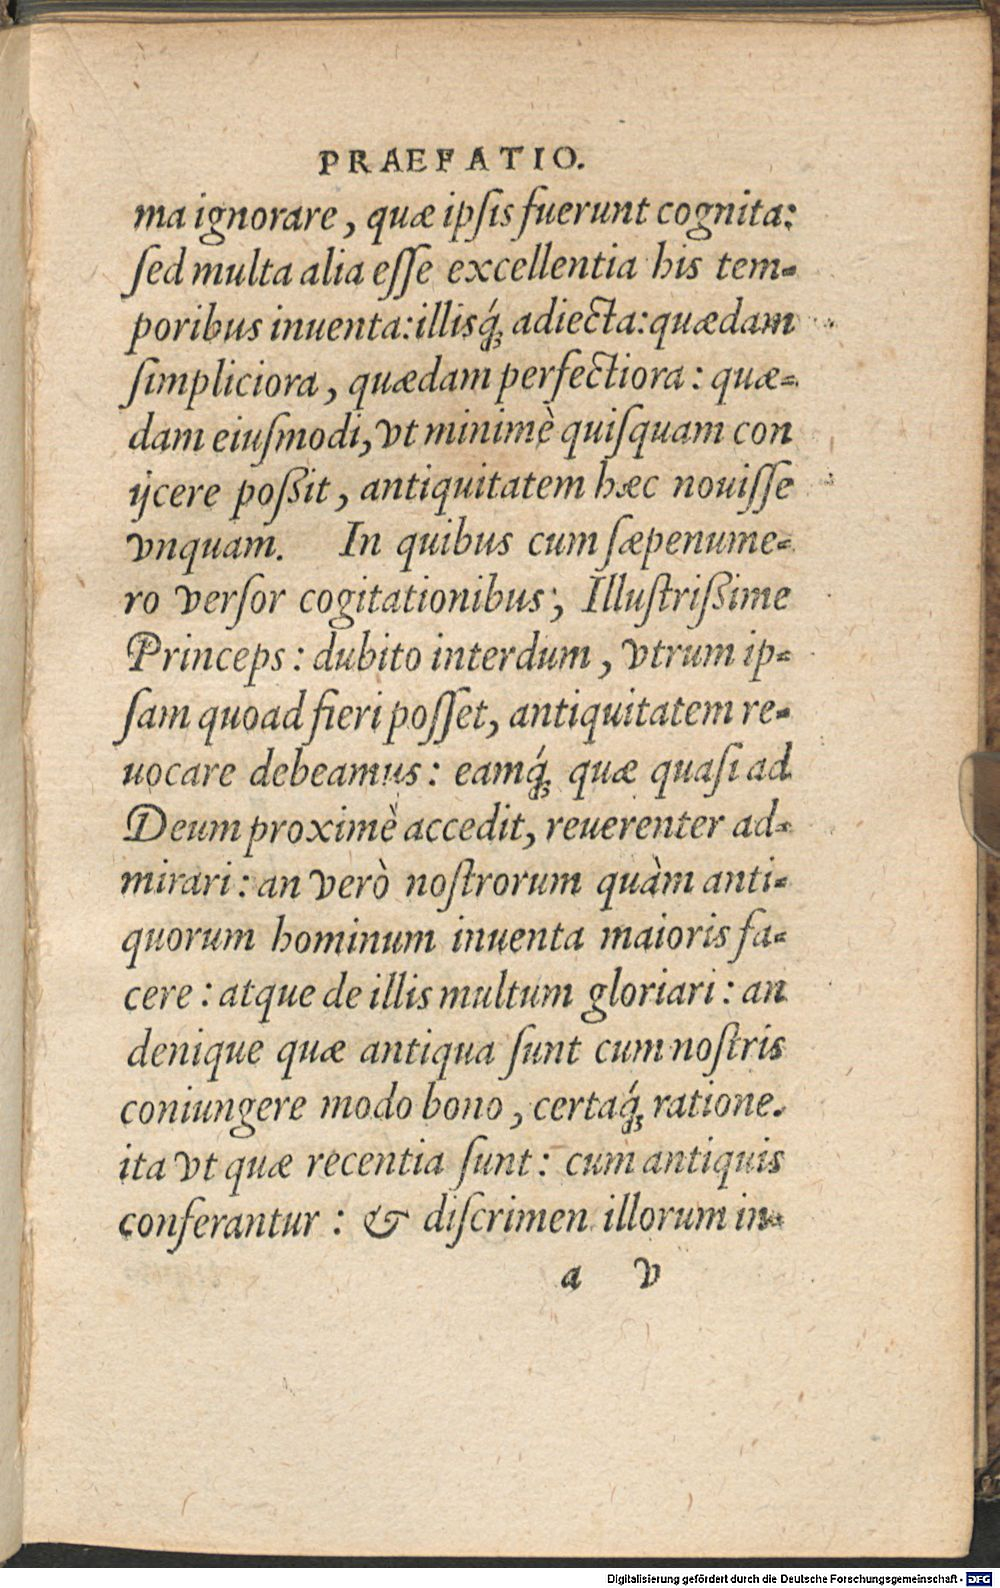 PRAEFATIO.
ma ignorare, quæ ipſis fuerunt cognita:
ſed multa alia eſſe excellentia his tem-
poribus inuenta: illisq́; adiecta: quædam
ſimpliciora, quædam perfectiora: quæ-
dam eiuſmodi, vt minimè quiſquam con
ijcere poßit, antiquitatem hæc nouiſſe
vnquam. In quibus cum ſæpenume-
ro verſor cogitationibus, Illuſtrißime
Princeps: dubito interdum, vtrum ip-
ſam quoad fieri poſſet, antiquitatem re-
uocare debeamus: eamq́; quæ quaſi ad
Deum proximè accedit, reuerenter ad-
mirari: an verò noſtrorum quàm anti-
quorum hominum inuenta maioris fa-
cere: atque de illis multum gloriari: an
denique quæ antiqua ſunt cum noſtris
coniungere modo bono, certaq́; ratione.
ita vt quæ recentia ſunt: cum antiquis
conferantur: & diſcrimen illorum in-
a v
Digitalisierung gefördert durch die Deutsche Forschungsgemeinschaft - DFG